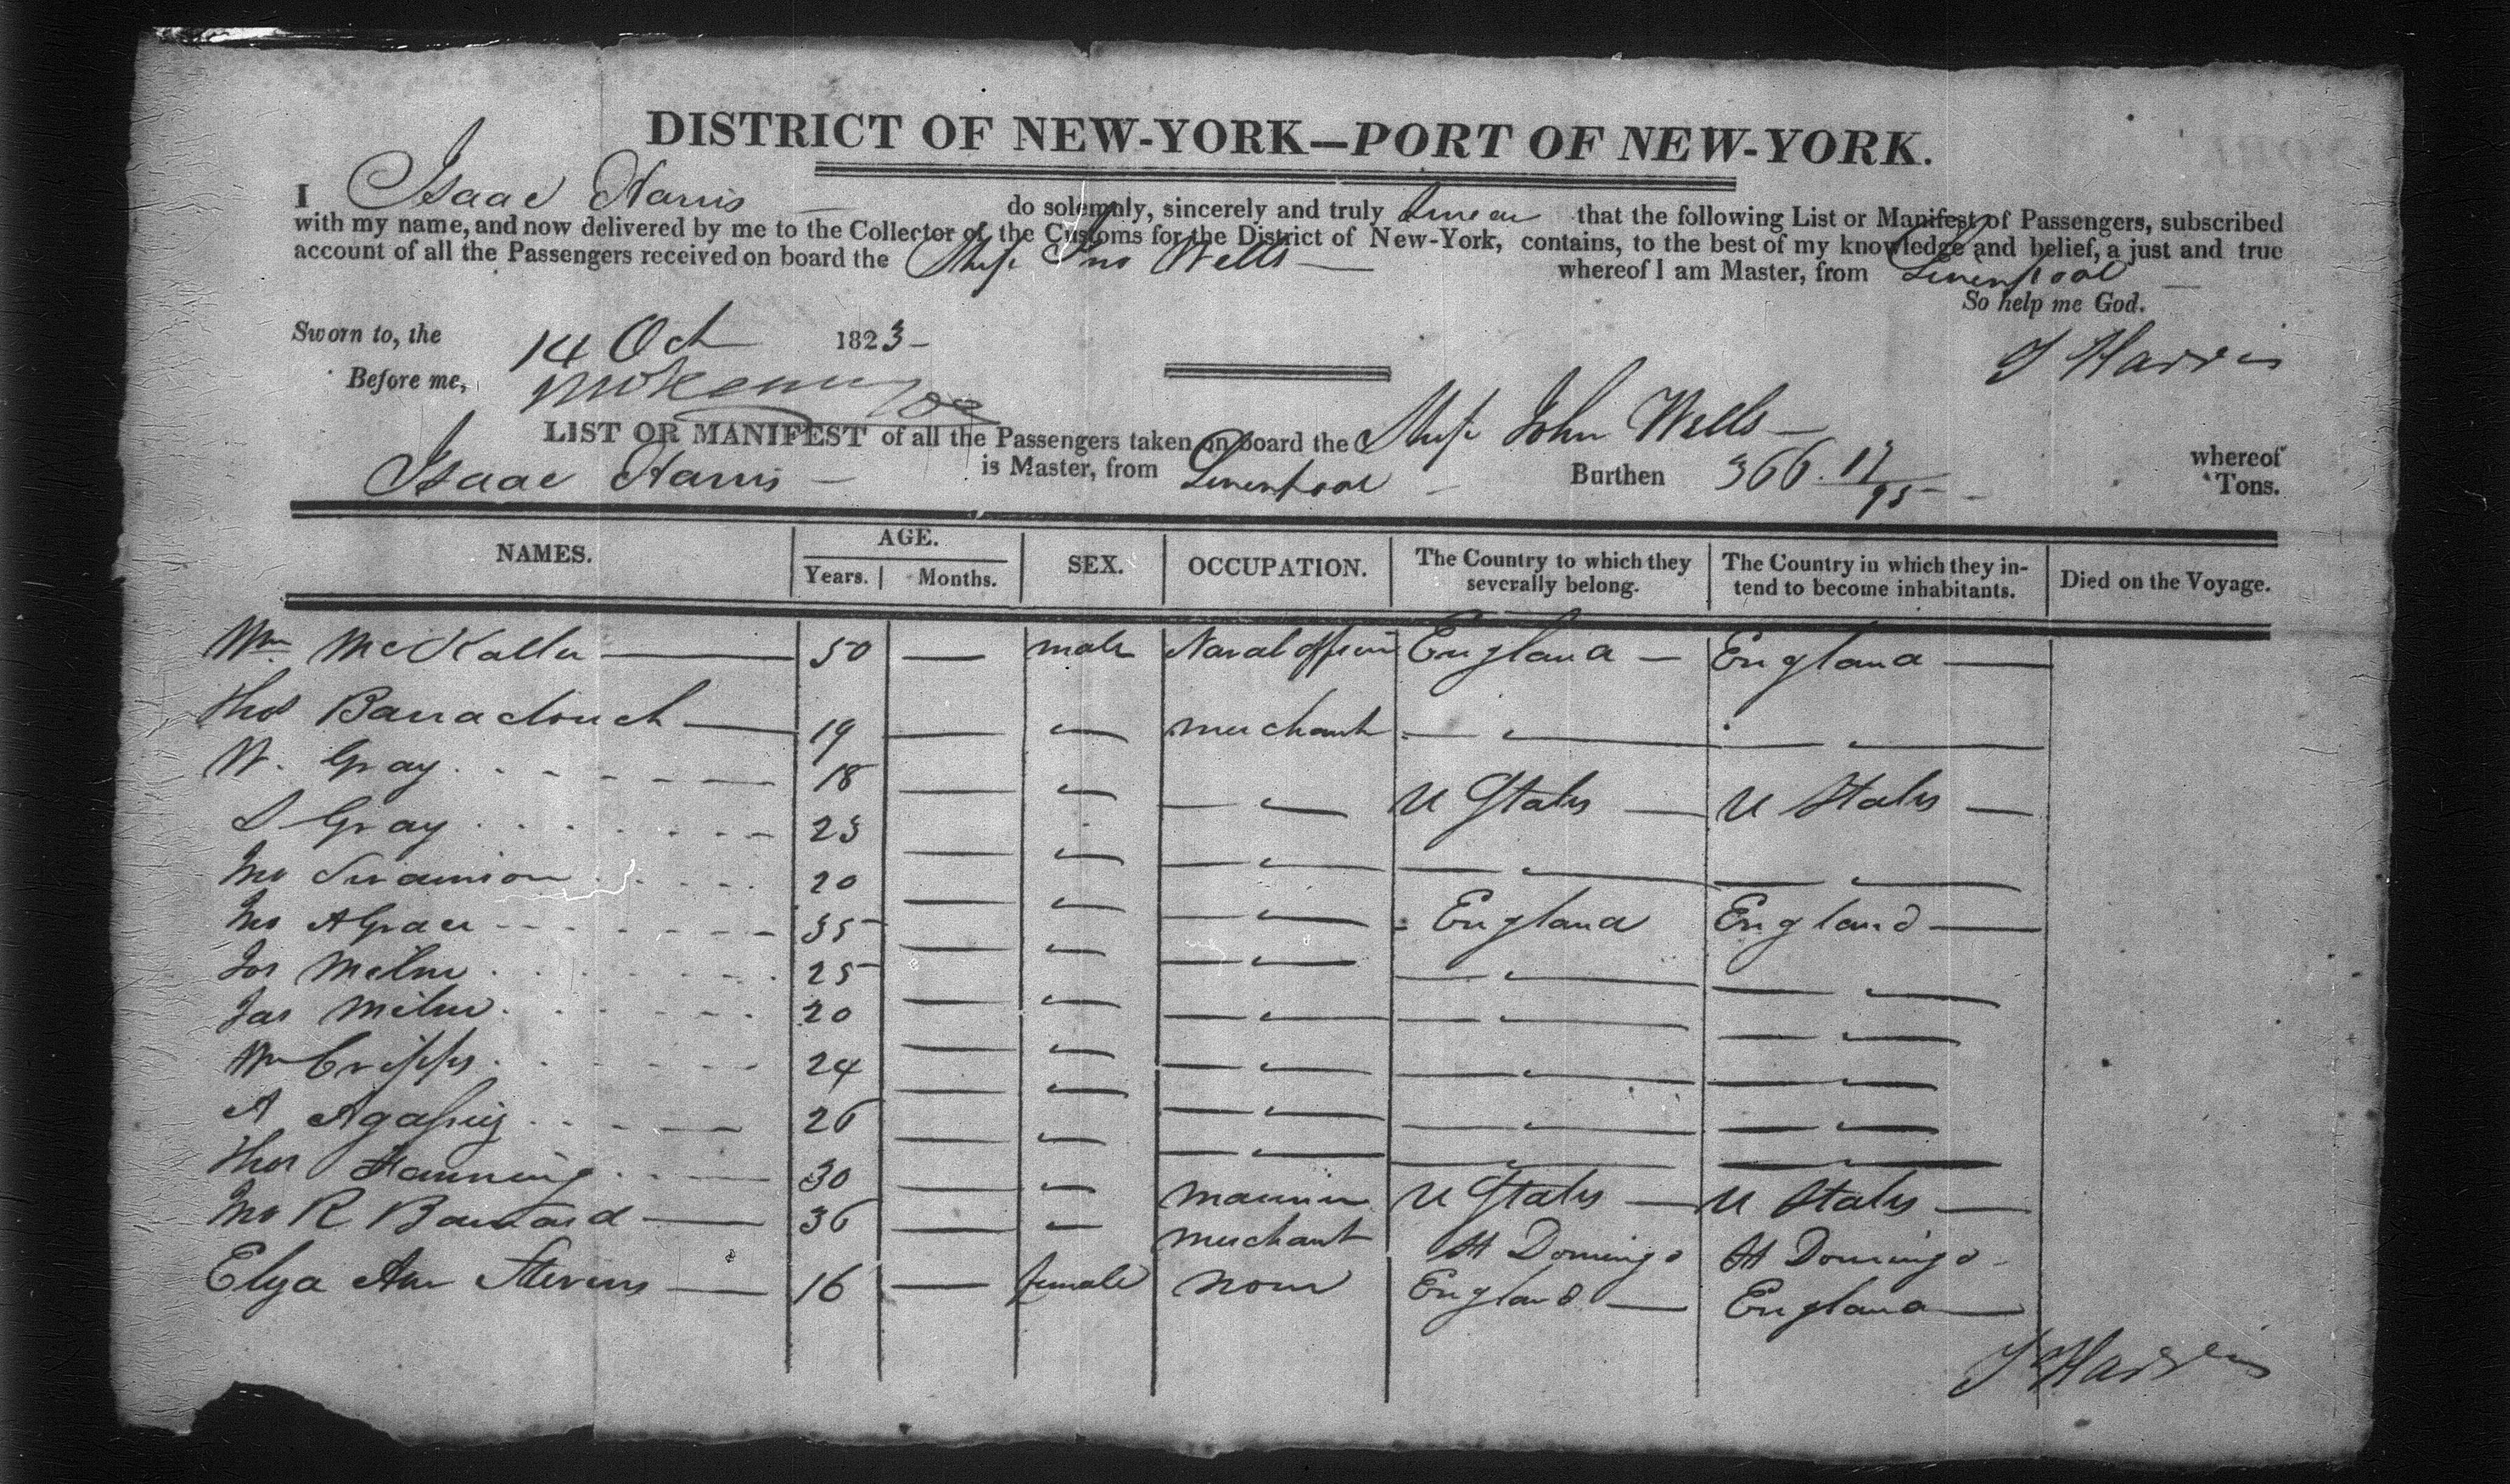 DISTRICT OF NEW-YORK—PORT OF NEW-YORK.
I Isaac Harris — do solemnly, sincerely and truly Swear that the following List or Manifest of Passengers, subscribed
with my name, and now delivered by me to the Collector of the Customs for the District of New-York, contains, to the best of my knowledge and belief, a just and true
account of all the Passengers received on board the Ship Jno Wells — whereof I am Master, from Liverpool —
So help me God.
Sworn to, the 14 Oct 1823 —
I Harris
Before me,
LIST OR MANIFEST of all the Passengers taken on board the Ship John Wells — whereof
Isaac Harris — is Master, from Liverpool — Burthen 366. 17/95 — Tons.
NAMES. AGE. SEX. OCCUPATION. The Country to which they severally belong. The Country in which they intend to become inhabitants. Died on the Voyage.
Years. Months.
Wm 50 — male Naval officer England — England —
Thos Barraclouch — 19 — " merchant — " — — " —
W. Gray 18 — " — " — U States — U States —
S Gray 23 — " — " — — " — — " —
Jno Swainson 20 — " — " — England England —
Jno A Grace 35 — " — " — — " — — " —
Jos Milne 25 — " — " — — " — — " —
Jas Milne 20 — " — " — — " — — " —
Wm Cripps 24 — " — " — — " — — " —
A 26 — " — " — — " — — " —
Thos 30 — " mariner U States — U States —
Jno R 36 — " merchant St Domingo St Domingo —
Elyza Ann Stevens — 16 — female none England — England —
I Harris